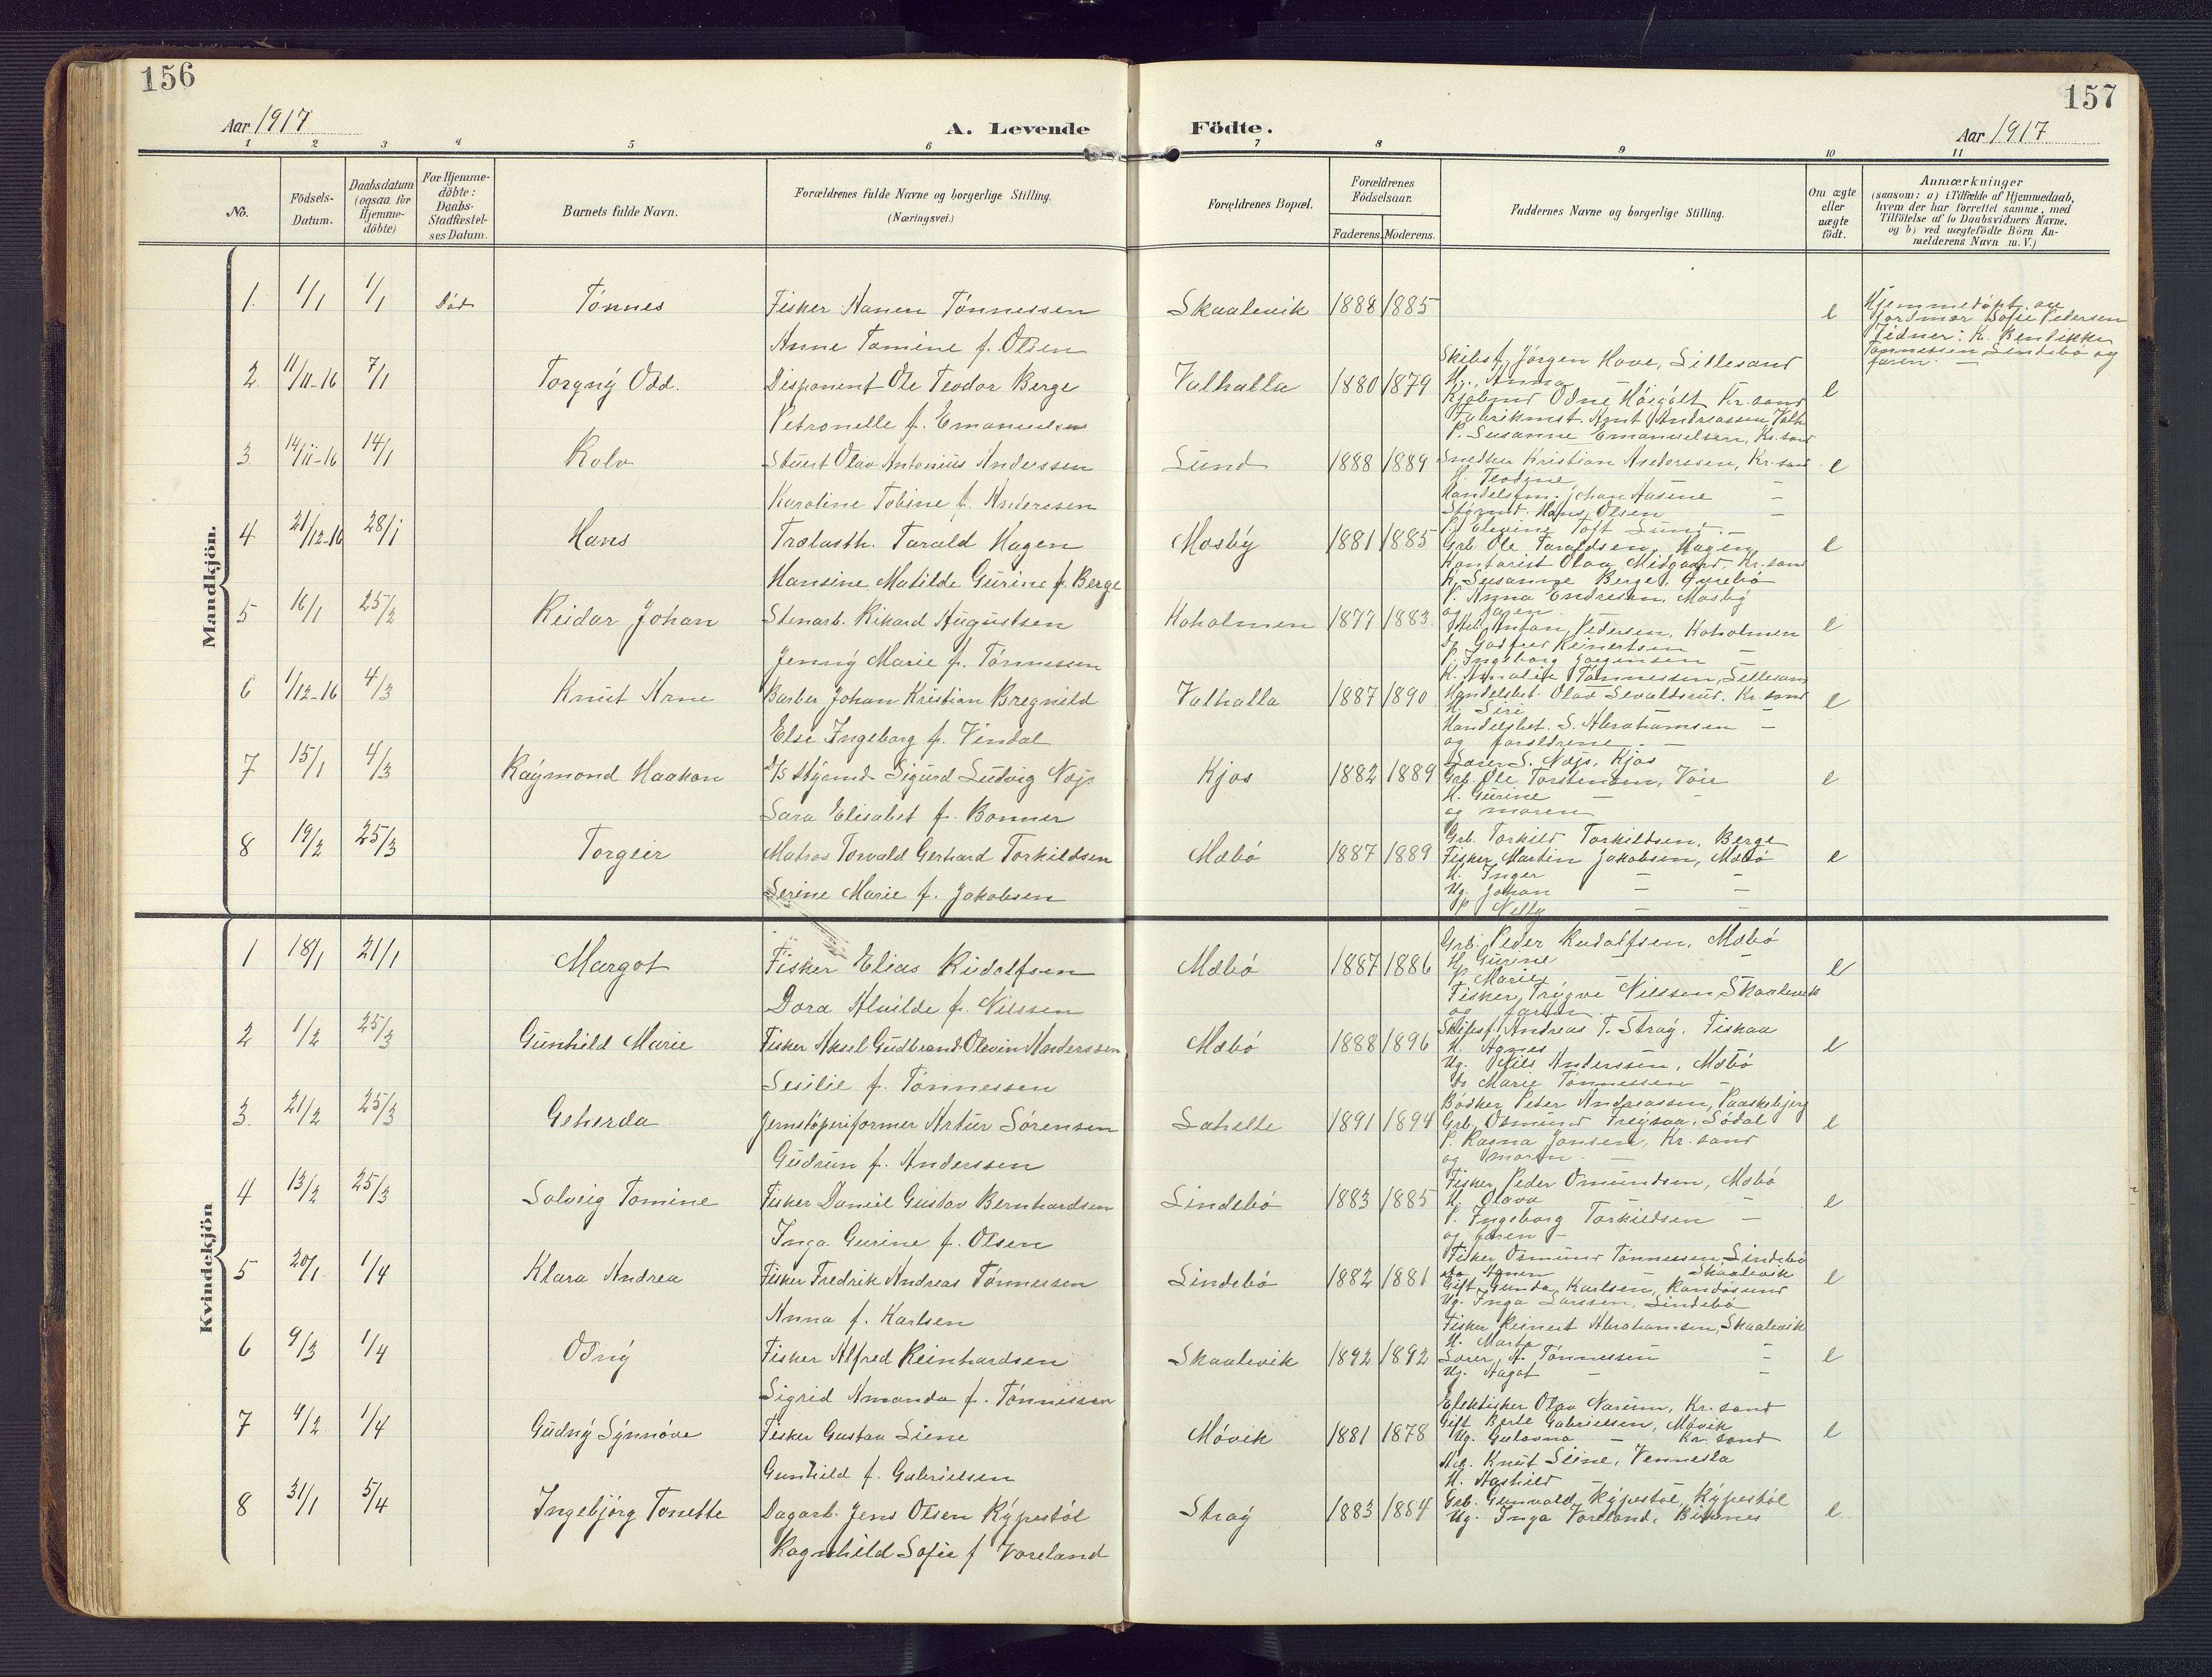 156
157
Aar 1917
A. Levende
Födte.
Aar 1917
1 2 3 4 5 6 7 8 9 10 11
No.
Födsels-Datum.
Daabsdatum (ogsaa for Hjemme-döbte)
For Hjemme-döbte: Daabs-Stadfæstel-ses Datum.
Barnets fulde Navn.
Forældrenes fulde Navne og borgerlige Stilling. (Næringsvei.)
Forældrenes Bopæl.
Forældrenes Födselsaar.
Faderens. Moderens.
Faddernes Navne og borgerlige Stilling.
Om ægte eller uægte födt.
Anmærkninger
(saasom: a) i Tilfælde af Hjemmedaab, hvem der har forrettet samme, med Tilföielse af to Daabsvidners Navne. og b) ved uægtefödte Börn An-melderens Navn m. V.)
Mandkjön.
1. 1/1 1/1 Död Tönnes Fisker Hanen Tönnessen Skaalevik 1888 1885 e
Anne Tomine f. Olsen
Hjemmedöpt av
Jordmor Sofie Pedersen
Vidner: K. Bendikke
Tönnessen Lindebö og
faren. —
2. 11/11-16 7/1 Torgny Odd. Disponent Ole Teodor Berge Valhalla 1880 1879 e
Petronelle f. Emanuelsen
Skibsf. Jörgen Hove, Lillesand
K. Anna
Kjöbmd Odne Höigilt Kr.sand
Fabrikmst. Arnt Andreassen Valh.
P. Susanne Emanuelsen, Kr.sand
3 14/11-16 14/1 Rolv Stuert Olav Antonius Anderssen Lund 1888 1889 e
Karoline Tobine f. Anderssen
Snedker Kristian Anderssen, Kr.sand
K. Teodine
Handelsfm. Johan Aasene —
Styrmd. Hans Olsen —
P. Elevine Toft Lund. —
4 21/12-16 28/1 Hans Trælasth. Tarald Hagen Mosby 1881 1885 e
Hansine Matilde Gurine f. Berge
Grb. Ole Taraldsen, Hagen
Kontorist Olav Midgaard, Kr.sand
K. Susanne Berge, Aurebö
P. Anna Endresen, Mosby
og faren.
5 16/1 25/2 Reidar Johan Stenarb. Rikard Augustsen Koholmen 1877 1883 e
Jenny Marie f. Tönnessen
Arb. Anton Pedersen, Koholmen
Godfred Reinertsen —
P. Ingeborg Jörgensen —
K. Amalie Tönnessen, Lillesand
6 1/12-16 4/3 Knut Arne Barber Johan Kristian Bregnild Valhalla 1887 1890 e
Else Ingeborg f. Vindal
Handelsbet. Olav Sevaldsrud. Kr.sand
K. Siri
Handelsbet. S. Abrahamsen —
og foreldrene. —
7 15/1 4/3 Raymond Haakon D/S Styrmd. Sigurd Ludvig Næss Kjos 1882 1889 e
Sara Elisabet f. Bonner
Lorer S. Næss, Kjos
Grb. Ole Torstensen, Voie
K. Gurine — —
og moren
8 19/2 25/3 Torgeir Matros Torvald Gerhard Torkildsen Mæbö 1887 1889 e
Serine Marie f. Jakobsen
Grb. Torkild Torkildsen, Berge
Fisker Martin Jakobsen, Mæbö
K. Inger — —
Ug. Johan — —
P. Nelly — —
Kvindekjön
1 18/1 21/1 Margot Fisker Elias Rudolfsen Mæbö 1887 1886 e
Dora Alvilde f. Nilssen
Grb. Peder Rudolfsen, Mæbö
K. Gurine — —
P. Marie
Fisker Trygve Nilssen, Skaalevik
og faren
2 1/2 25/3 Gunhild Marie Fisker Aksel Gudbrand Olevin Anderssen Mæbö 1888 1896 e
Sesilie f. Tönnessen
Skibsf. Andreas T. Stray. Fiskaa
K. Agnes
Ug. Nils Anderssen, Mæbö
Do Marie Tönnessen —
3. 21/2 25/3 Geherda Jernstöperiformer Artur Sörensen Lahelle 1891 1894 e
Gudrun f. Anderssen
Bödker Peter Andreassen, Paaskebjerg
Grb. Osmund Fröysaa, Södal
P. Ragna Jansen, Kr.sand
og moren. —
4 13/2 25/3 Solveig Tomine Fisker Daniel Gustav Bernhardsen Lindebö 1883 1885 e
Inga Gurine f. Olsen
Fisker Peder Osmundsen, Mæbö
K. Olava —
P. Ingeborg Torkildsen —
og faren —
5 20/1 1/4 Klara Andrea Fisker Fredrik Andreas Tönnessen Lindebö 1882 1881 e
Anna f. Karlsen
Fisker Osmund Tönnessen Lindebö
do Agnen — Skaalevik
Gift Gunda Karlsen, Randösund
Ug. Inga Larssen, Lindebö
6 9/3 1/4 Odny Fisker Alfred Reinhardsen Skaalevik 1892 1892 e
Sigrid Amanda f. Tönnessen
Fisker Reinert Abrahamsen, Skaalevik
K. Marta —
Lorer A. Tönnessen —
Ug. Aagot — —
7 4/2 1/4 Gudny Synnöve Fisker Gustav Liene Mövik 1881 1878 e
Gunhild f. Gabrielsen
Elektisker Olav Narum, Kr.sand
Gift Berte Gabrielsen, Mövik
Ug. Gulovna — Kr.sand
8 31/1 5/4 Ingebjörg Tonette Dagarb. Jens Olsen Rypestöl Stray 1883 1884 e
Ragnhild Sofie f Voreland
Knut Liene, Vennesla
K. Aashild
Grb. Gunvald Rypestöl, Rypestöl
Ug. Inga Voreland, Birknes